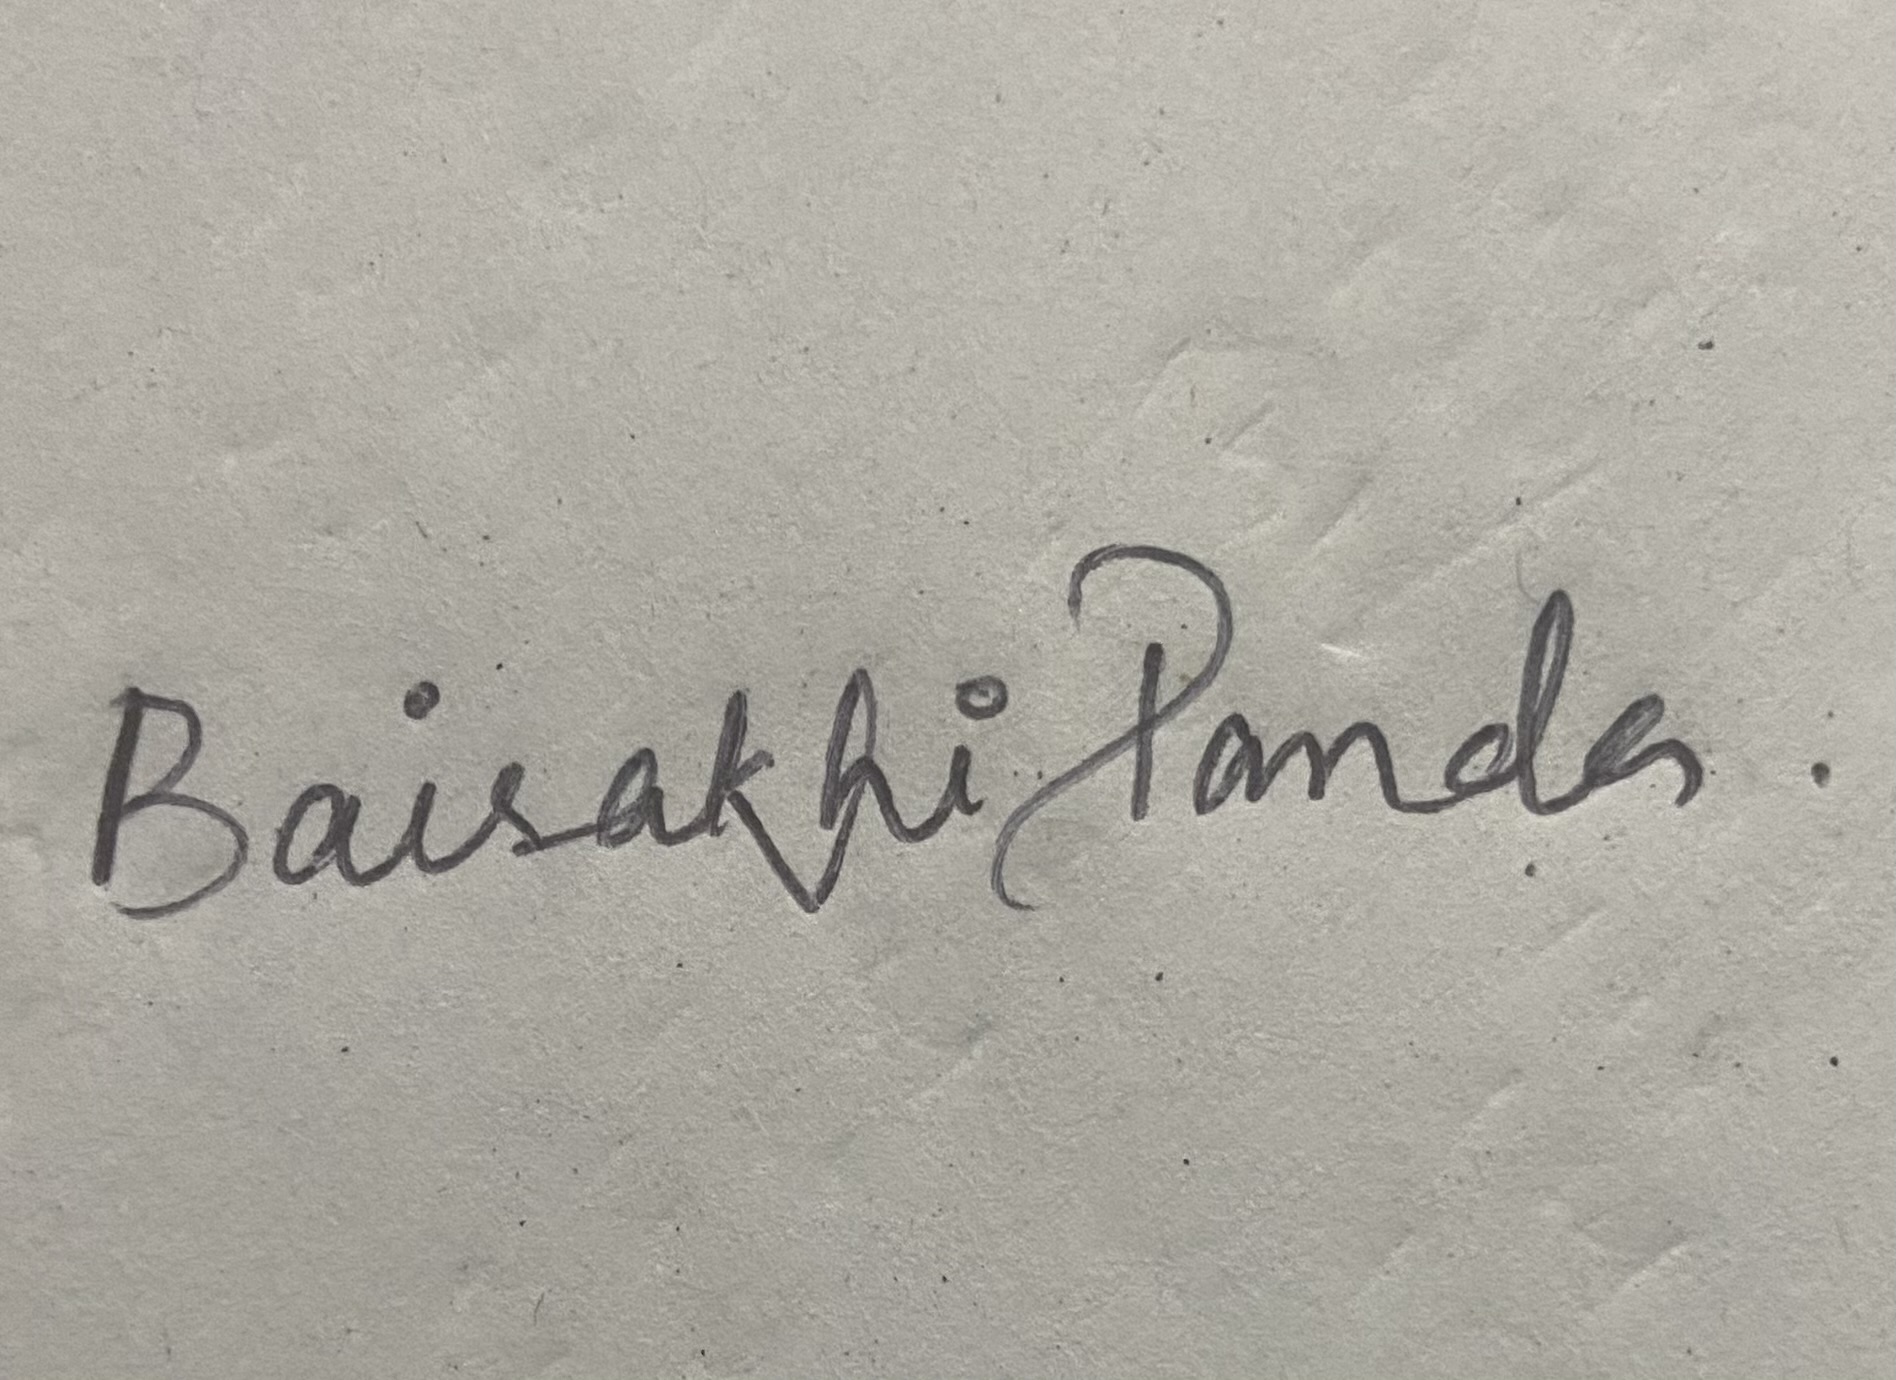 Baisakhi Panda.